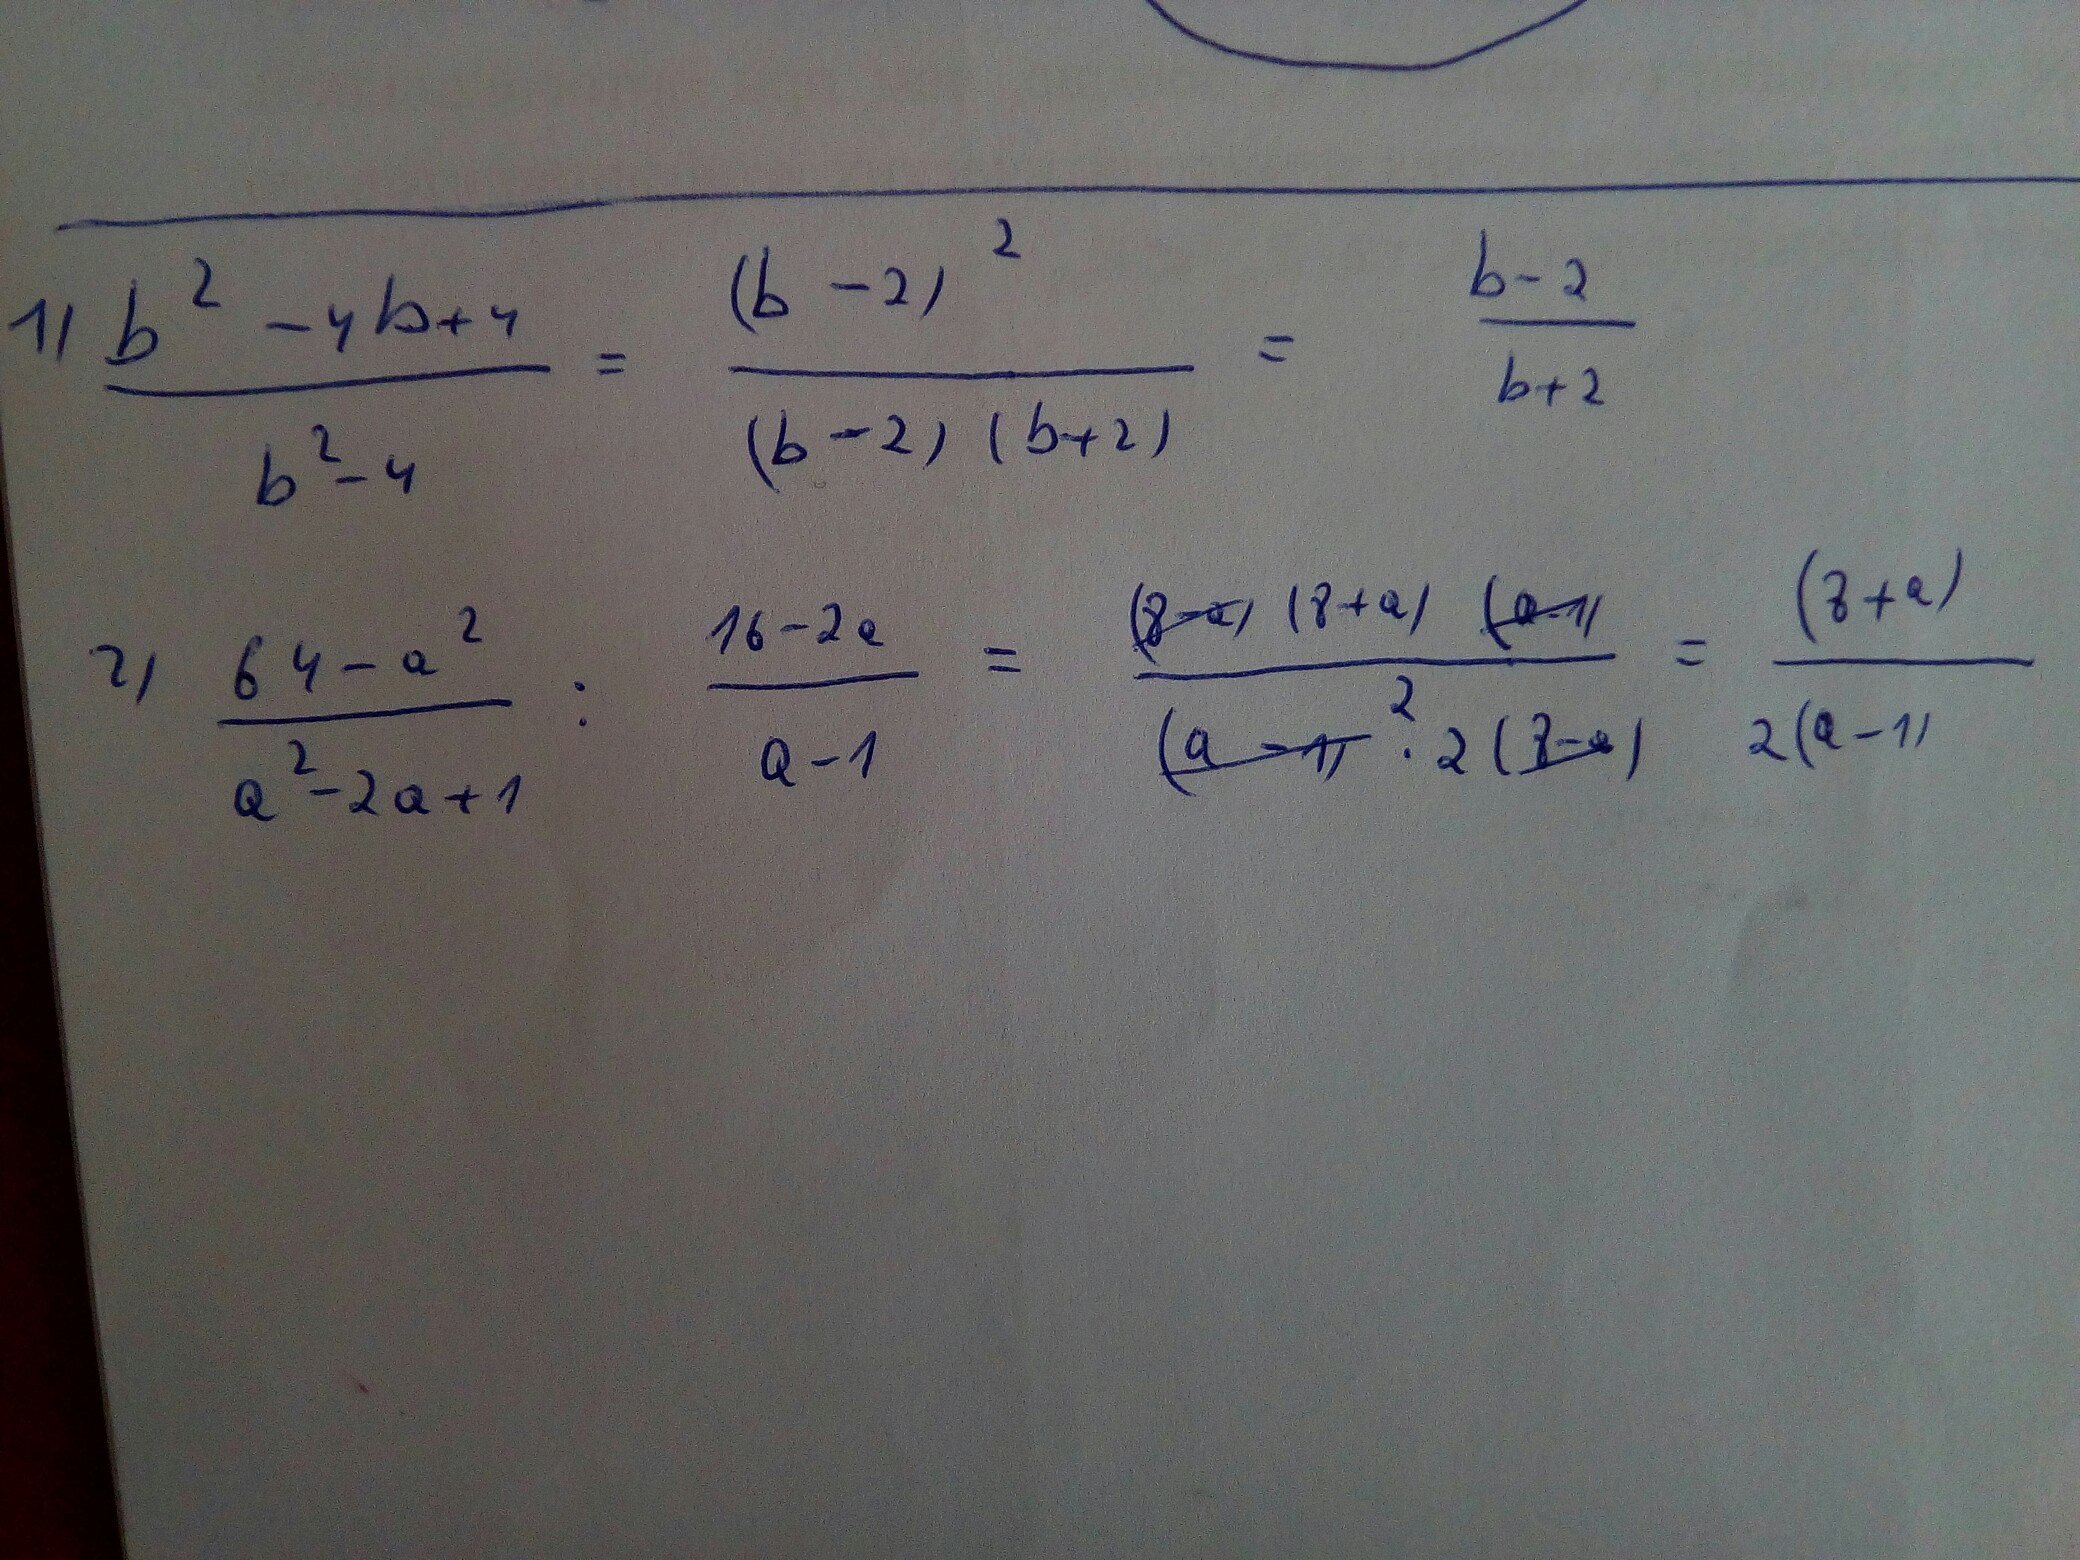 1) b² - 4b + 4 / b² - 4 = (b - 2)² / (b - 2) (b + 2) = b - 2 / b + 2
2) 64 - a² / a² - 2a + 1 : 16 - 2a / a - 1 = (8 - a) (8 + a) (a - 1) / (a - 1)² · 2 (8 - a) = (8 + a) / 2 (a - 1)